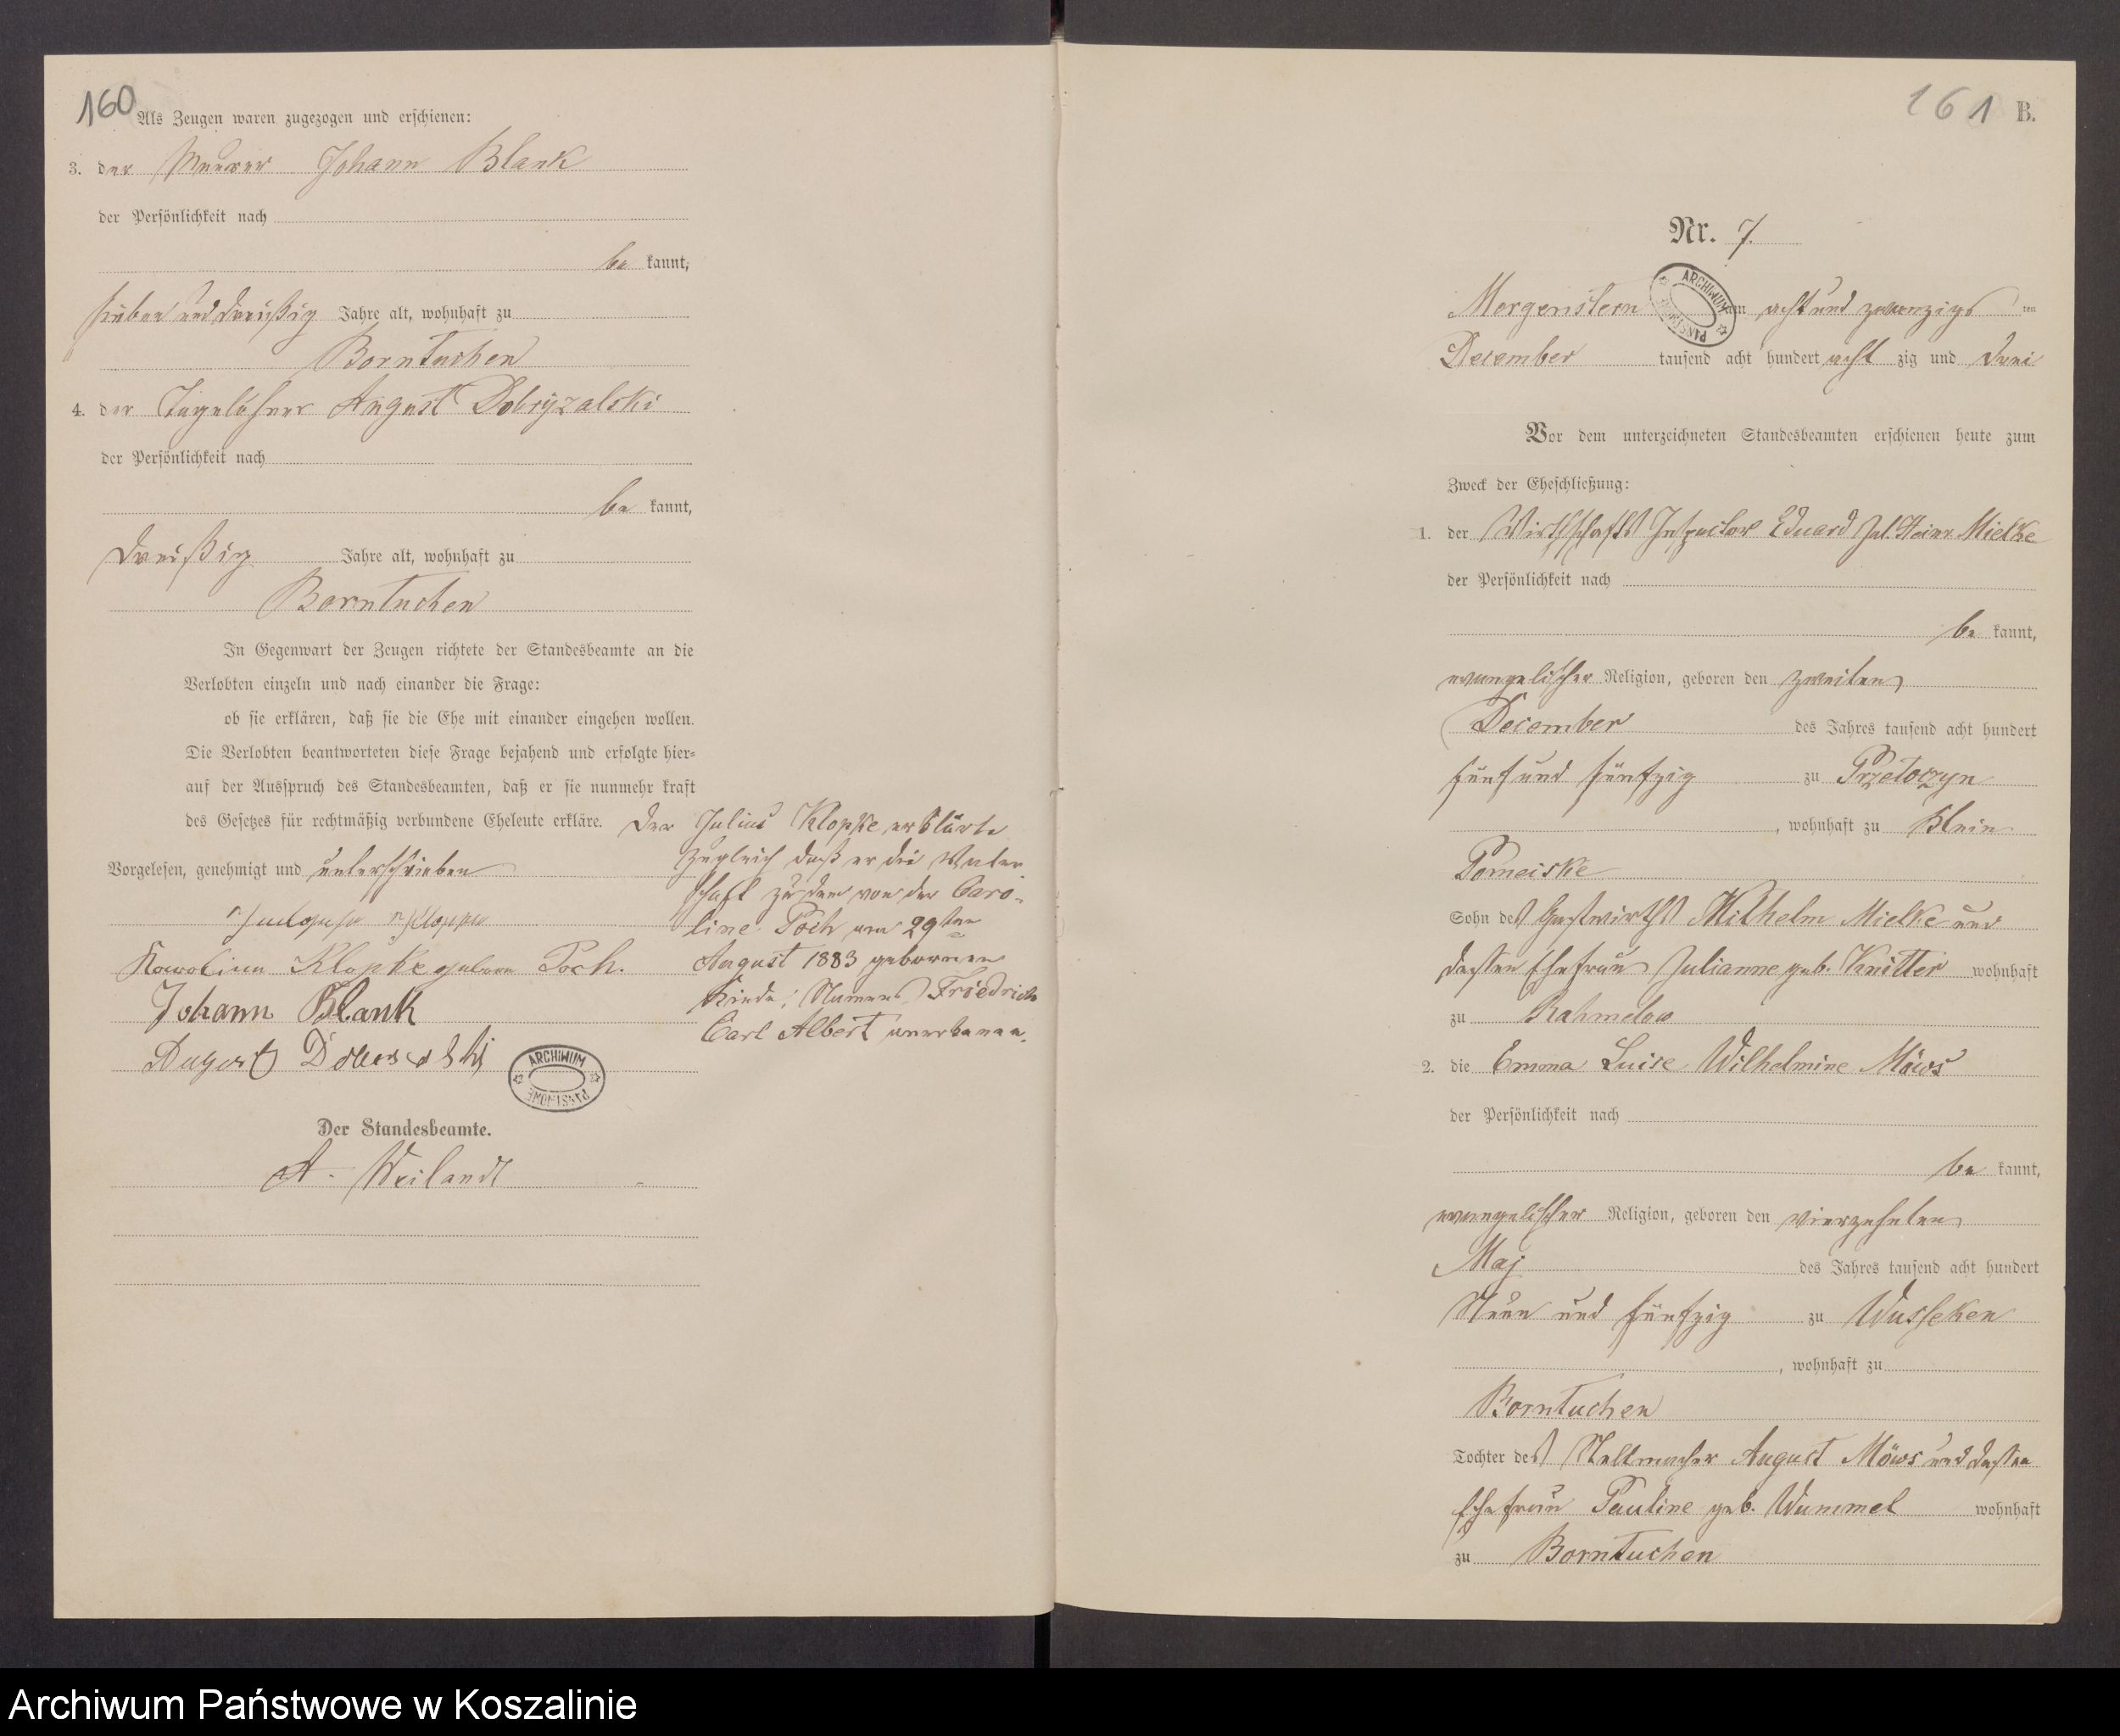 160
Als Zeugen waren zugezogen und erschienen:
3. der Maurer Johann Blank
der Persönlichkeit nach
be kannt,
sieben und dreißig Jahre alt, wohnhaft zu
Borntuchen
4. der Tagelöhner August Dobryzalski
der Persönlichkeit nach
be kannt,
dreißig Jahre alt, wohnhaft zu
Borntuchen
In Gegenwart der Zeugen richtete der Standesbeamte an die
Verlobten einzeln und nach einander die Frage:
ob sie erklären, daß sie die Ehe mit einander eingehen wollen.
Die Verlobten beantworteten diese Frage bejahend und erfolgte hier-
auf der Ausspruch des Standesbeamten, daß er sie nunmehr kraft
des Gesetzes für rechtmäßig verbundene Eheleute erkläre. Der Julius Klopke erklärte
zugleich daß er die Vater
schaft zu dem von der Caro-
line Poch am 29ten
August 1883 geborenen
Kinde, Namens Friedrich
Carl Albert anerkenne.
Vorgelesen, genehmigt und unterschrieben
Karoline Klopke geborn Poch.
Johann Blank
August
ARCHIWUM PAŃSTWOWE
Der Standesbeamte.
A. Weilandt
161 B.
Nr. 7.
Morgenstern am acht und zwanzigs ten
ARCHIWUM PAŃSTWOWE
December tausend acht hundert acht zig und drei
Vor dem unterzeichneten Standesbeamten erschienen heute zum
Zweck der Eheschließung:
1. der Wirthschafts Inspector Eduard Jul. Heinr. Mielke
der Persönlichkeit nach
be kannt,
evangelischer Religion, geboren den zweiten
December des Jahres tausend acht hundert
fünf und fünfzig zu Przetoczyn
, wohnhaft zu Klein
Pomeiske
Sohn des Gastwirths Wilhelm Mielke und
dessen Ehefrau Julianne geb. Knitter wohnhaft
zu Rahmelow
2. die Emma Luise Wilhelmine Möws
der Persönlichkeit nach
be kannt,
evangelischer Religion, geboren den vierzehnten
Maj des Jahres tausend acht hundert
Neun und fünfzig zu Wusseken
, wohnhaft zu
Borntuchen
Tochter des Stellmacher August Möws und dessen
Ehefrau Pauline geb. Wummel wohnhaft
zu Borntuchen
Archiwum Państwowe w Koszalinie